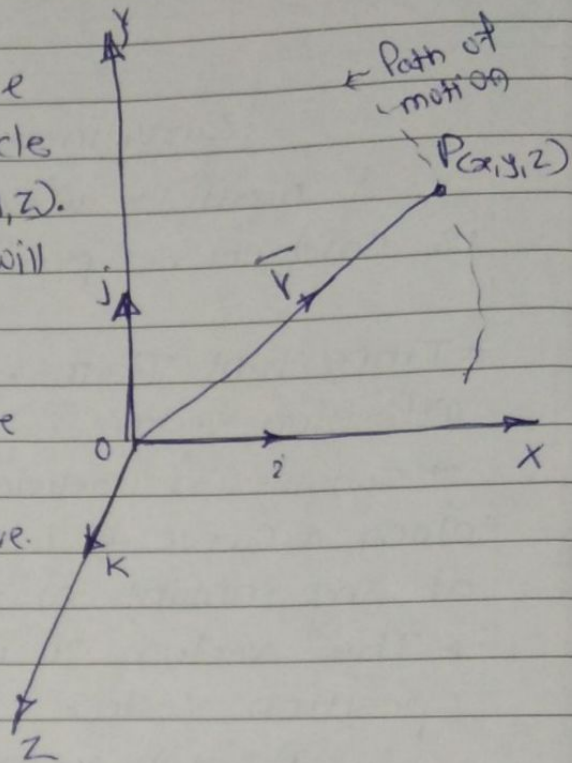 Y
e
← Path of
motion
cle
P(x,y,z)
,z).
will
r
j
e
O
i
X
ve.
K
Z